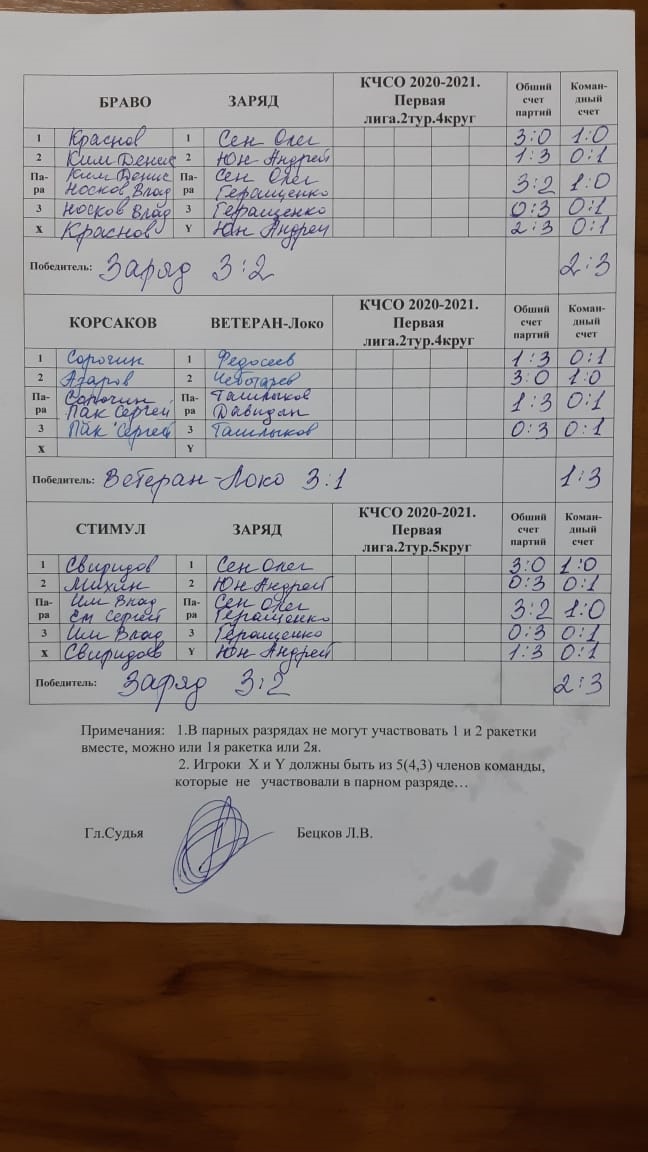 БРАВО ЗАРЯД КЧСО 2020-2021. Первая лига.2тур.4круг Общий счет партий Коман-дный счет
1 Краснов 1 Сен Олег 3:0 1:0
2 Ким Денис 2 Юн Андрей 1:3 0:1
Па-ра Ким Денис Носков Влад Па-ра Сен Олег Геращенко 3:2 1:0
3 Носков Влад 3 Геращенко 0:3 0:1
X Краснов Y Юн Андрей 2:3 0:1
Победитель: Заряд 3:2 2:3
КОРСАКОВ ВЕТЕРАН-Локо КЧСО 2020-2021. Первая лига.2тур.4круг Общий счет партий Коман-дный счет
1 Сорочин 1 Федосеев 1:3 0:1
2 Азаров 2 Чеботарев 3:0 1:0
Па-ра Сорочин Пак Сергей Па-ра Ташлыков Давидан 1:3 0:1
3 Пак Сергей 3 Ташлыков 0:3 0:1
X Y
Победитель: Ветеран-Локо 3:1 1:3
СТИМУЛ ЗАРЯД КЧСО 2020-2021. Первая лига.2тур.5круг Общий счет партий Коман-дный счет
1 Свиридов 1 Сен Олег 3:0 1:0
2 Михин 2 Юн Андрей 0:3 0:1
Па-ра Им Влад Ем Сергей Па-ра Сен Олег Геращенко 3:2 1:0
3 Им Влад 3 Геращенко 0:3 0:1
X Свиридов Y Юн Андрей 1:3 0:1
Победитель: Заряд 3:2 2:3
Примечания: 1.В парных разрядах не могут участвовать 1 и 2 ракетки
вместе, можно или 1я ракетка или 2я.
2. Игроки X и Y должны быть из 5(4,3) членов команды,
которые не участвовали в парном разряде…
Гл.Судья Бецков Л.В.